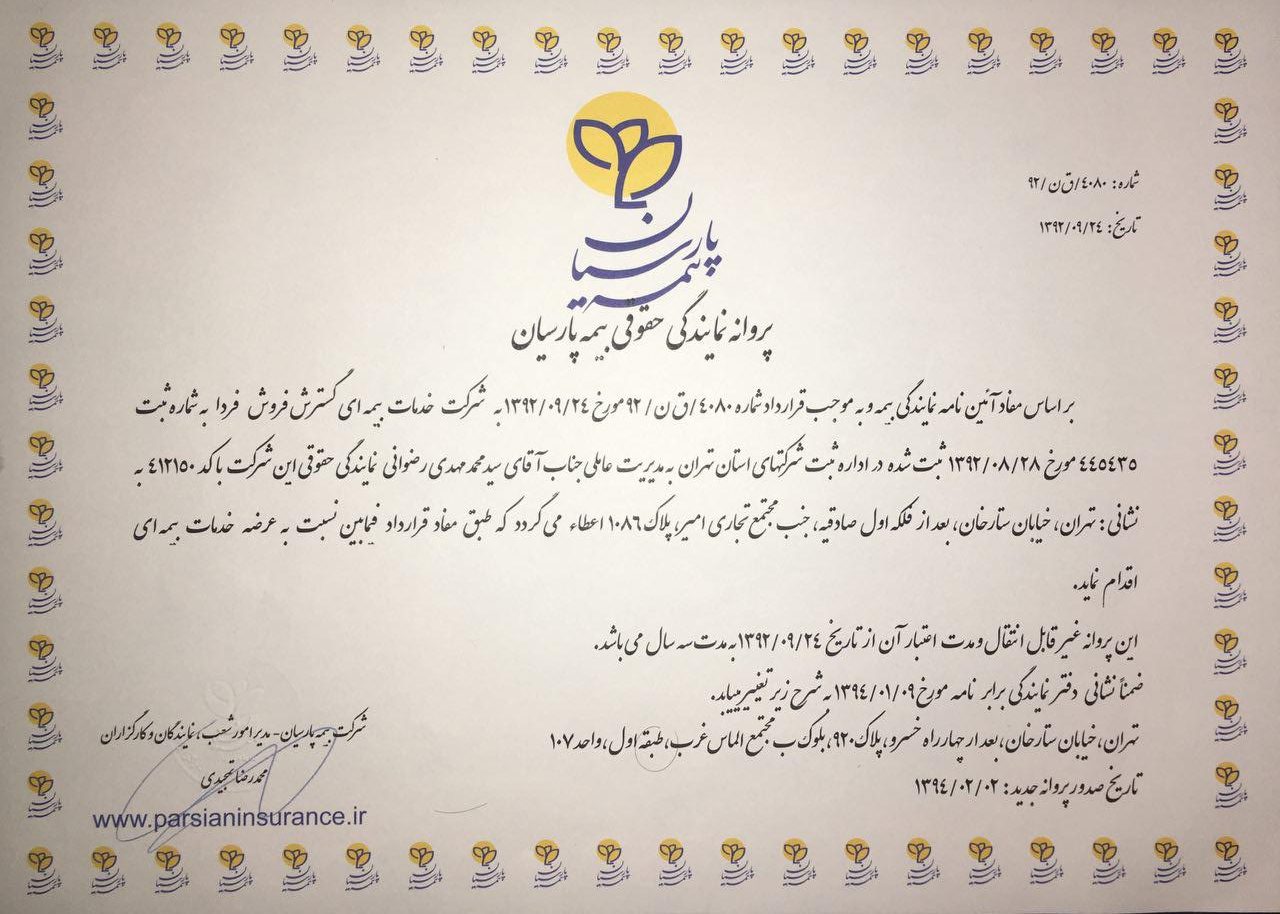 پارسیان
بیمه
شماره: ٤٠٨٠/ق ن/٩٢
تاریخ: ١٣٩٢/٠٩/٢٤
پروانه نمایندگی حقوقی بیمه پارسیان
بر اساس مفاد آئین نامه نمایندگی بیمه و به موجب قرارداد شماره ٤٠٨٠/ق ن/٩٢ مورخ ١٣٩٢/٠٩/٢٤ به شرکت خدمات بیمه ای گسترش فروش فردا به شماره ثبت
٤٤٥٤٣٥ مورخ ١٣٩٢/٠٨/٢٨ ثبت شده در اداره ثبت شرکتهای استان تهران به مدیریت عاملی جناب آقای سید محمد مهدی رضوانی نمایندگی حقوقی این شرکت با کد ٤١٢١٥٠ به
نشانی: تهران، خیابان ستارخان، بعد از فلکه اول صادقیه، جنب مجتمع تجاری امیر، پلاک ١٠٨٦ اعطاء می گردد که طبق مفاد قرارداد فیمابین نسبت به عرضه خدمات بیمه ای
اقدام نماید.
این پروانه غیر قابل انتقال و مدت اعتبار آن از تاریخ ١٣٩٢/٠٩/٢٤ به مدت سه سال می باشد.
ضمناً نشانی دفتر نمایندگی برابر نامه مورخ ١٣٩٤/٠١/٠٩ به شرح زیر تغییر مییابد.
تهران، خیابان ستارخان، بعد از چهار راه خسرو، پلاک ٩٢٠، بلوک ب مجتمع الماس غرب، طبقه اول، واحد ١٠٧
تاریخ صدور پروانه جدید: ١٣٩٤/٠٢/٠٢
شرکت بیمه پارسیان- مدیر امور شعب، نمایندگان و کارگزاران
محمدرضا تمجیدی
www.parsianinsurance.ir